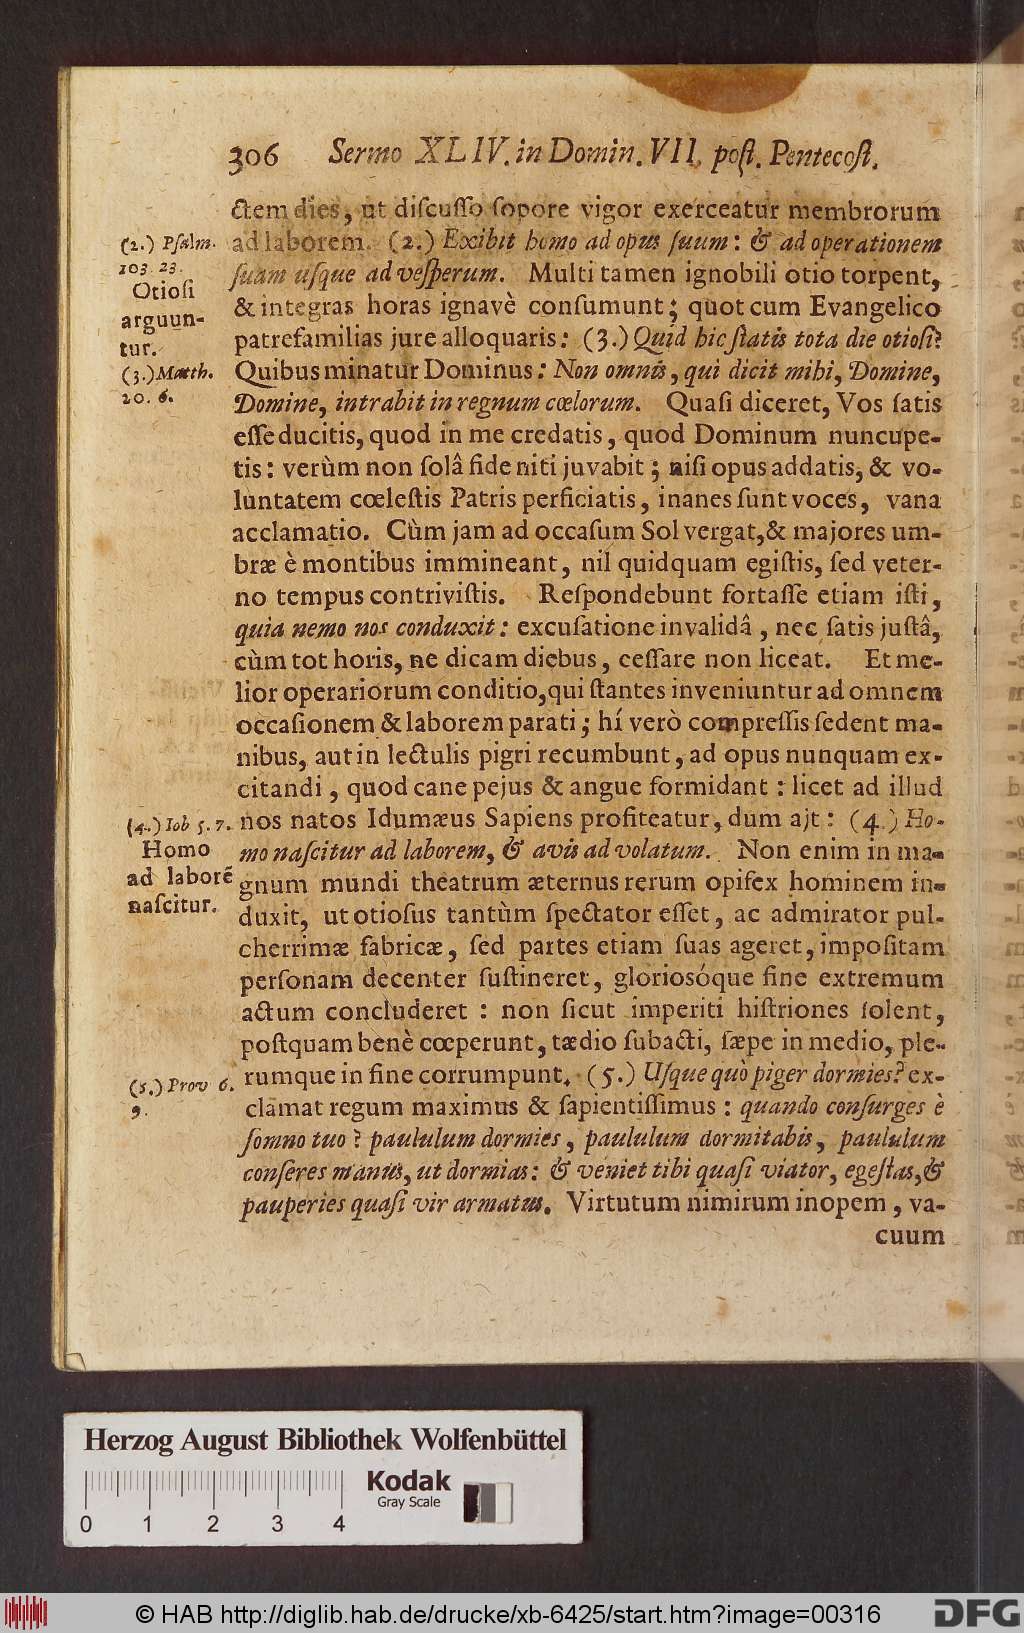 306 Sermo XLIV. in Domin. VII. poſt. Pentecoſt.
ctem dies, ut diſcuſſo ſopore vigor exerceatur membrorum
ad laborem. (2.) Exibit homo ad opus ſuum: & ad operationem
ſuam uſque ad veſperum. Multi tamen ignobili otio torpent,
& integras horas ignavè conſumunt; quot cum Evangelico
patrefamilias jure alloquaris: (3.) Quid hic ſtatis tota die otioſi?
Quibus minatur Dominus: Non omnis, qui dicit mihi, Domine,
Domine, intrabit in regnum cœlorum. Quaſi diceret, Vos ſatis
eſſe ducitis, quod in me credatis, quod Dominum nuncupe-
tis: verùm non ſolâ fide niti juvabit; niſi opus addatis, & vo-
luntatem cœleſtis Patris perficiatis, inanes ſunt voces, vana
acclamatio. Cùm jam ad occaſum Sol vergat, & majores um-
bræ è montibus immineant, nil quidquam egiſtis, ſed veter-
no tempus contriviſtis. Reſpondebunt fortaſſe etiam iſti,
quia nemo nos conduxit: excuſatione invalidâ, nec ſatis juſtâ,
cùm tot horis, ne dicam diebus, ceſſare non liceat. Et me-
lior operariorum conditio, qui ſtantes inveniuntur ad omnem
occaſionem & laborem parati; hí verò compreſſis ſedent ma-
nibus, aut in lectulis pigri recumbunt, ad opus nunquam ex-
citandi, quod cane pejus & angue formidant: licet ad illud
nos natos Idumæus Sapiens profiteatur, dum ajt: (4.) Ho-
mo naſcitur ad laborem, & avis ad volatum. Non enim in ma-
gnum mundi theatrum æternus rerum opifex hominem in-
duxit, ut otioſus tantùm ſpectator eſſet, ac admirator pul-
cherrimæ fabricæ, ſed partes etiam ſuas ageret, impoſitam
perſonam decenter ſuſtineret, gloriosóque fine extremum
actum concluderet: non ſicut imperiti hiſtriones ſolent,
poſtquam benè cœperunt, tædio ſubacti, ſæpe in medio, ple-
rumque in fine corrumpunt. (5.) Uſque quò piger dormies? ex-
clamat regum maximus & ſapientiſſimus: quando conſurges è
ſomno tuo? paululum dormies, paululum dormitabis, paululum
conſeres manus, ut dormias: & veniet tibi quaſi viator, egeſtas, &
pauperies quaſi vir armatus. Virtutum nimirum inopem, va-
cuum
(2.) Pſalm.
103. 23.
Otioſi
arguun-
tur.
(3.) Matth.
20. 6.
(4.) Iob 5. 7.
Homo
ad laborē
naſcitur.
(5.) Prov 6.
9.
Herzog August Bibliothek Wolfenbüttel
Kodak
Gray Scale
0 1 2 3 4
© HAB http://diglib.hab.de/drucke/xb-6425/start.htm?image=00316
DFG